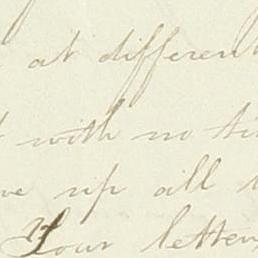 at different
with no
up all
Your letter